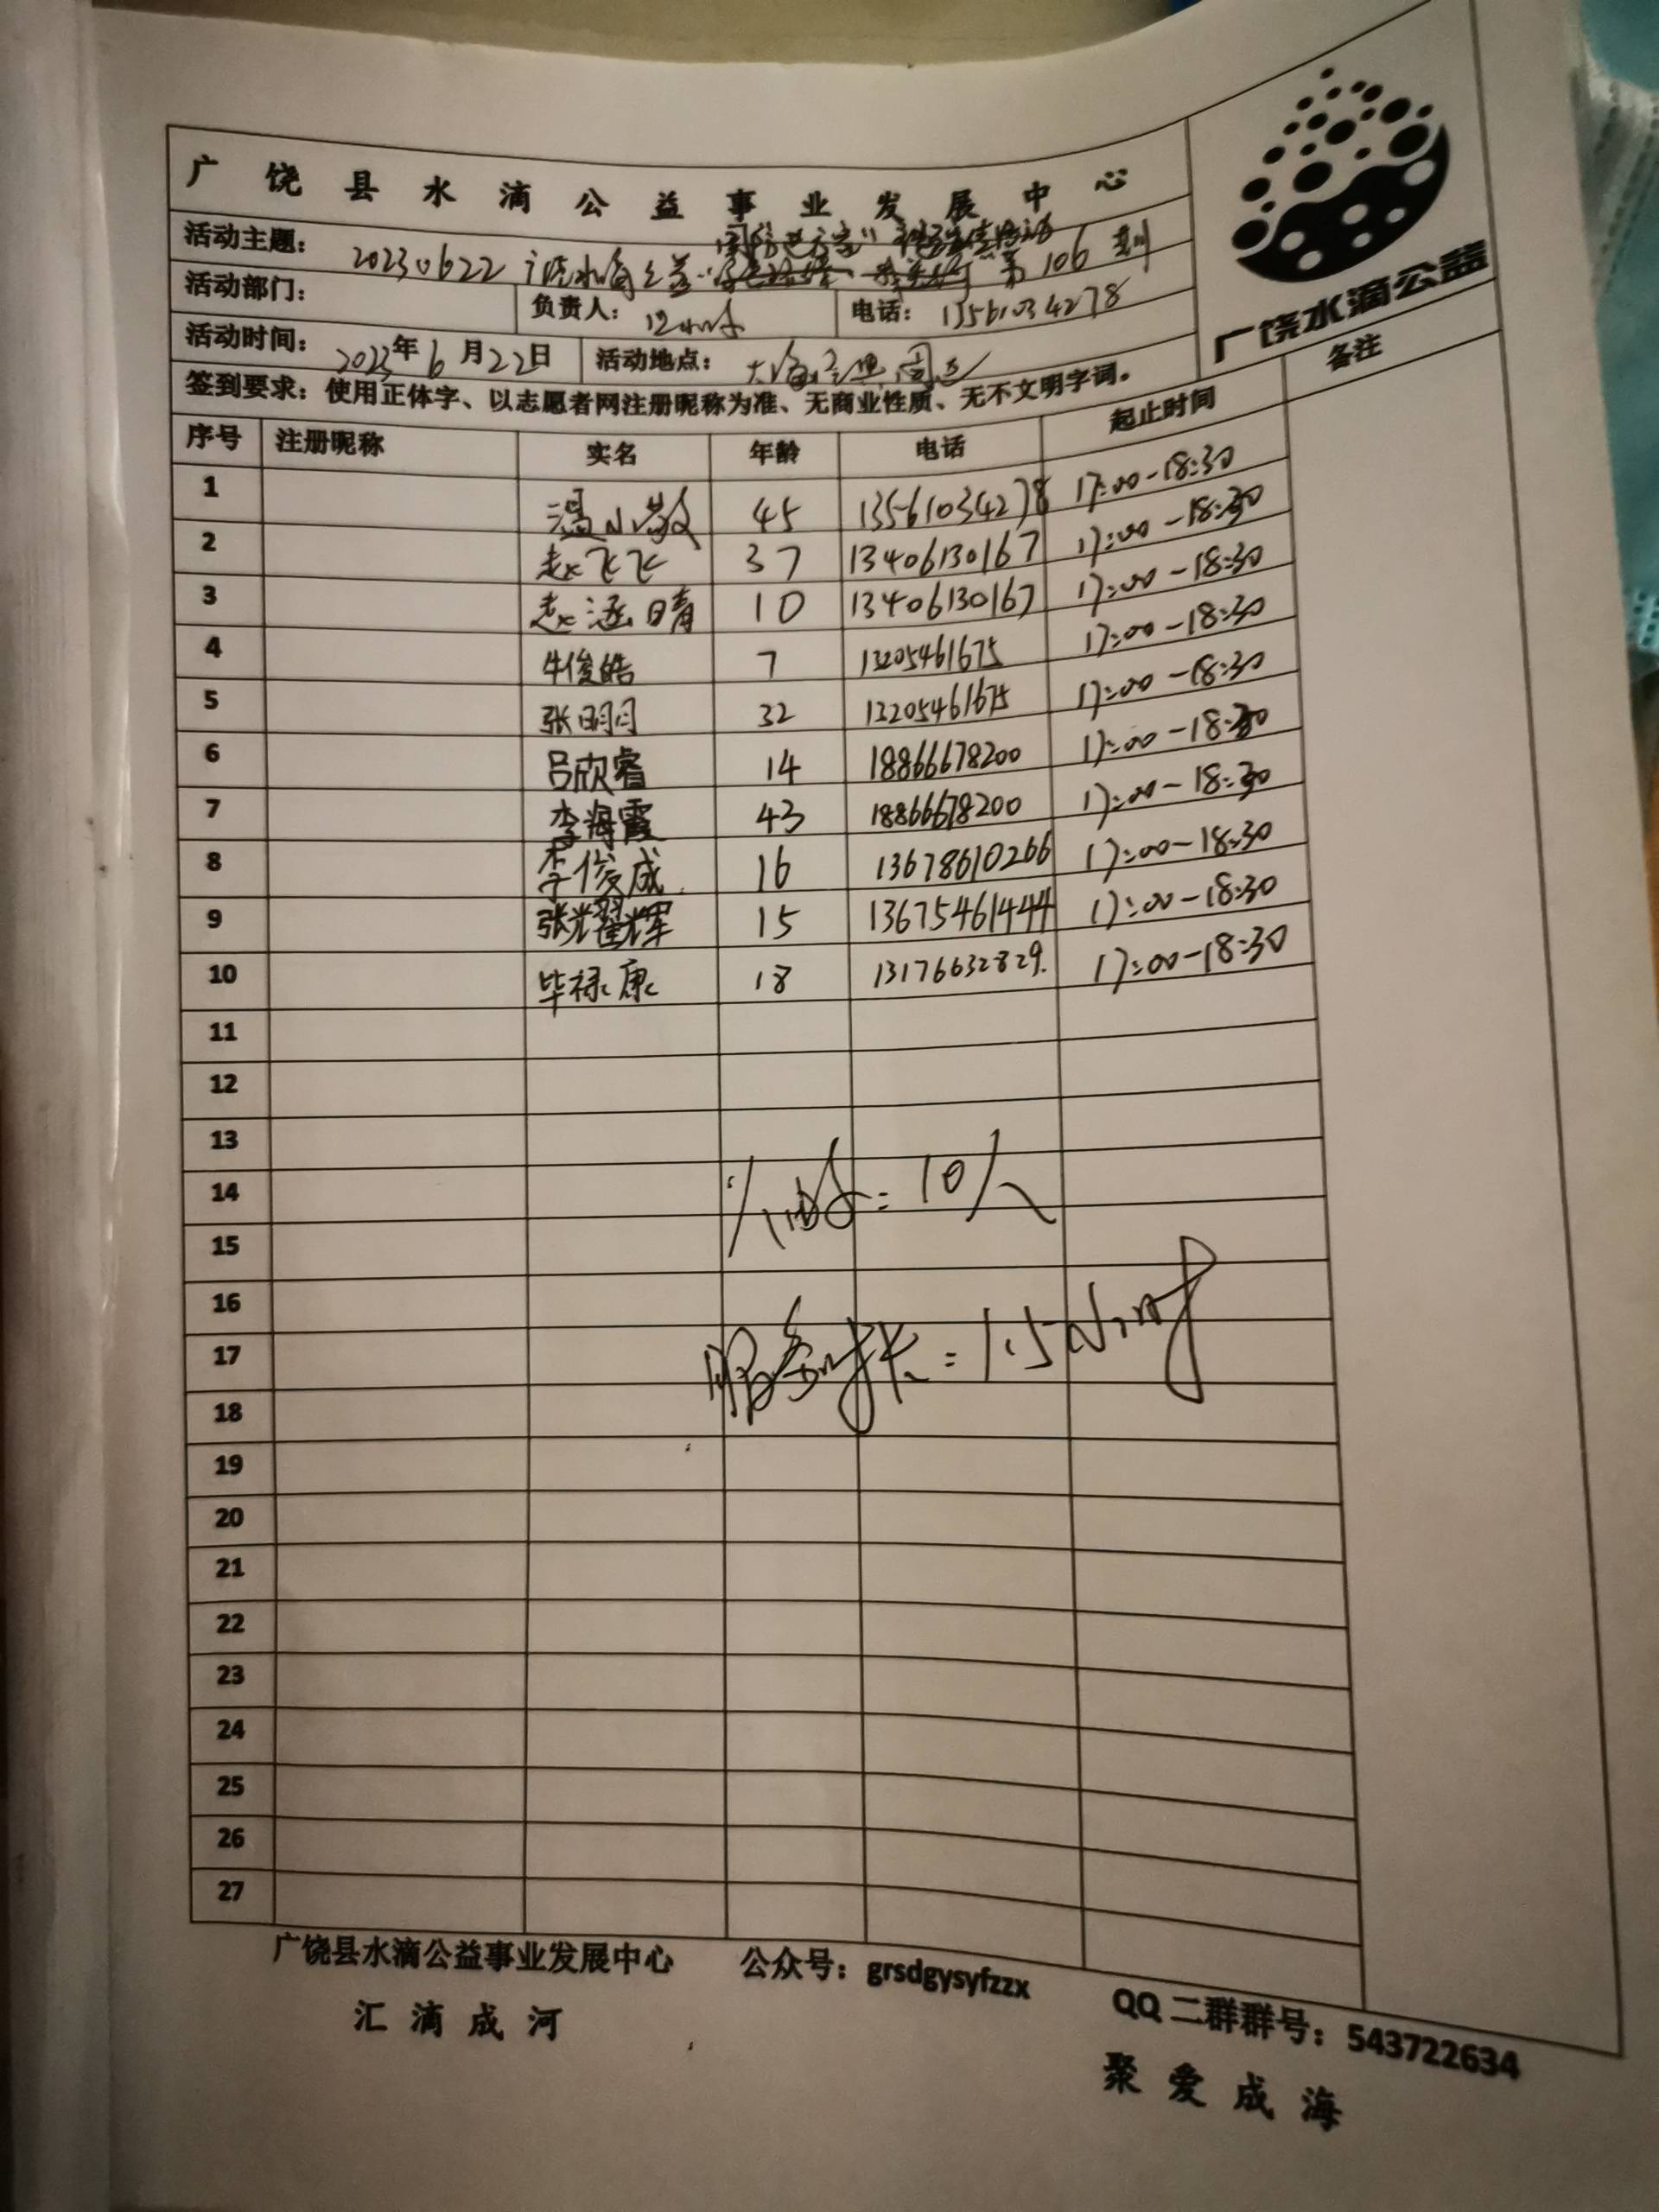 广饶县水滴公益事业发展中心
活动主题： 20230622 广饶水滴公益 第106期
活动部门： 负责人： 电话： 13561034278
活动时间： 2023年6月22日 活动地点：
签到要求：使用正体字、以志愿者网注册昵称为准、无商业性质、无不文明字词。
广饶水滴公益
序号 注册昵称 实名 年龄 电话 起止时间 备注
1 温小敏 45 13561034278 17:00-18:30
2 赵飞飞 37 13406130167 17:00-18:30
3 赵涵晴 10 13406130167 17:00-18:30
4 牛俊皓 7 13205461675 17:00-18:30
5 张明月 32 13205461675 17:00-18:30
6 吕欣睿 14 18866678200 17:00-18:30
7 李海霞 43 18866678200 17:00-18:30
8 李俊成 16 13678610266 17:00-18:30
9 张耀辉 15 13675461444 17:00-18:30
10 毕禄康 18 13176632829. 17:00-18:30
11
12
13
14 =10人
15
16
17 服务时长=1.5小时
18
19
20
21
22
23
24
25
26
27
广饶县水滴公益事业发展中心 公众号：grsdgysyfzzx QQ二群群号：543722634
汇滴成河 聚爱成海